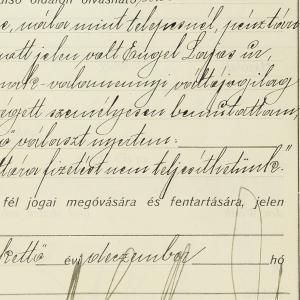 első oldalgn olvasható,
nála mint telepesnél, pénztára
miatt jelen volt Engel Lajos úr,
valamennyi váltójogilag
személyesen bemutattam,
választ nyertem:
fizetést nem teljesíthetünk."
fél jogai megóvására és fentartására, jelen
kettő év deczember hó